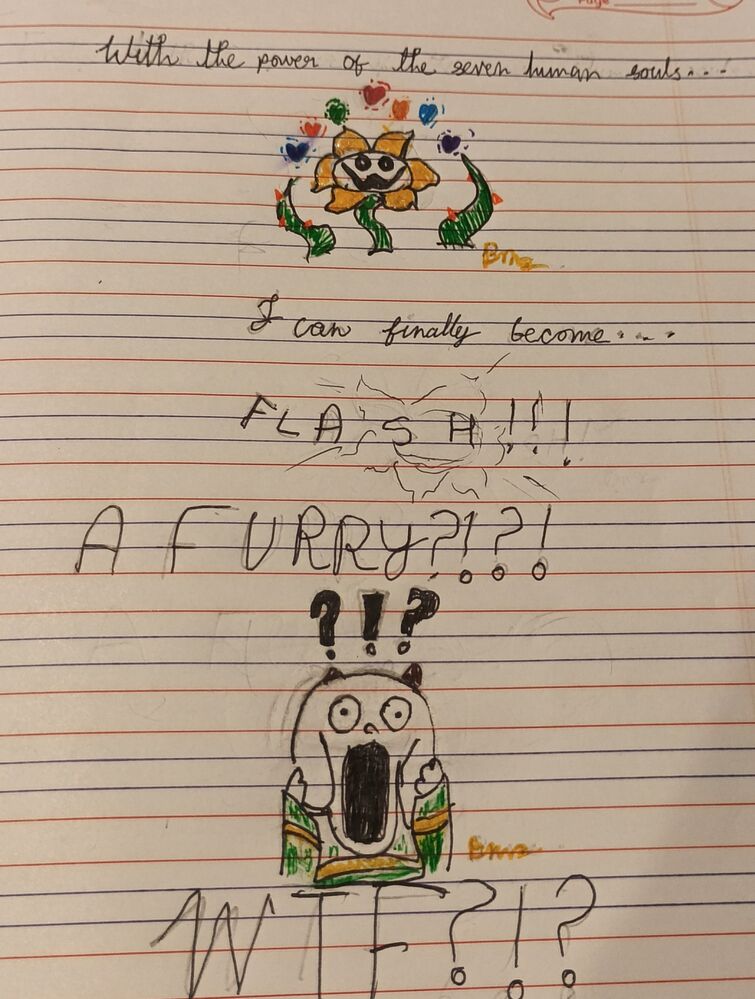 Page
With the power of the seven human souls...
I can finally become....
FLASH!!!
A FURRY?!?!
?!?
WTF?!?